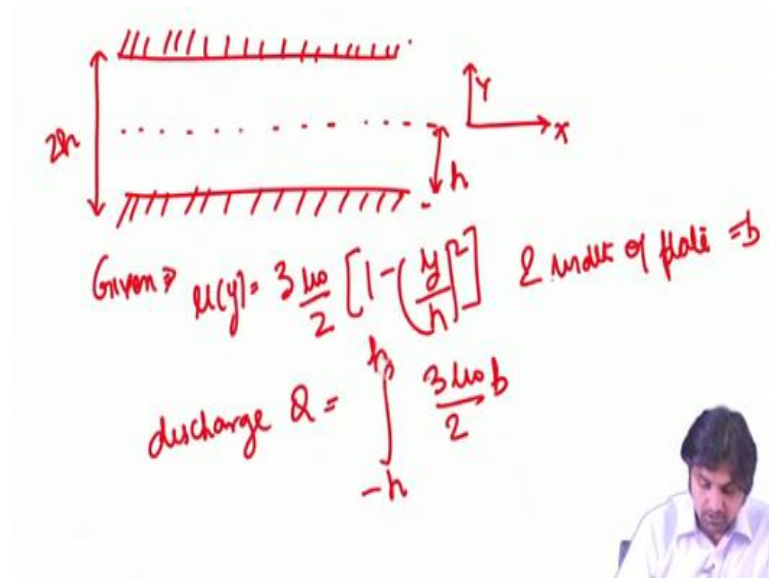 2h
Y
X
h
Given⇒ u(y) = 3u₀/2 [1-(y/h)²] & width of plate = b
discharge Q = ∫ from -h to h 3u₀/2 b